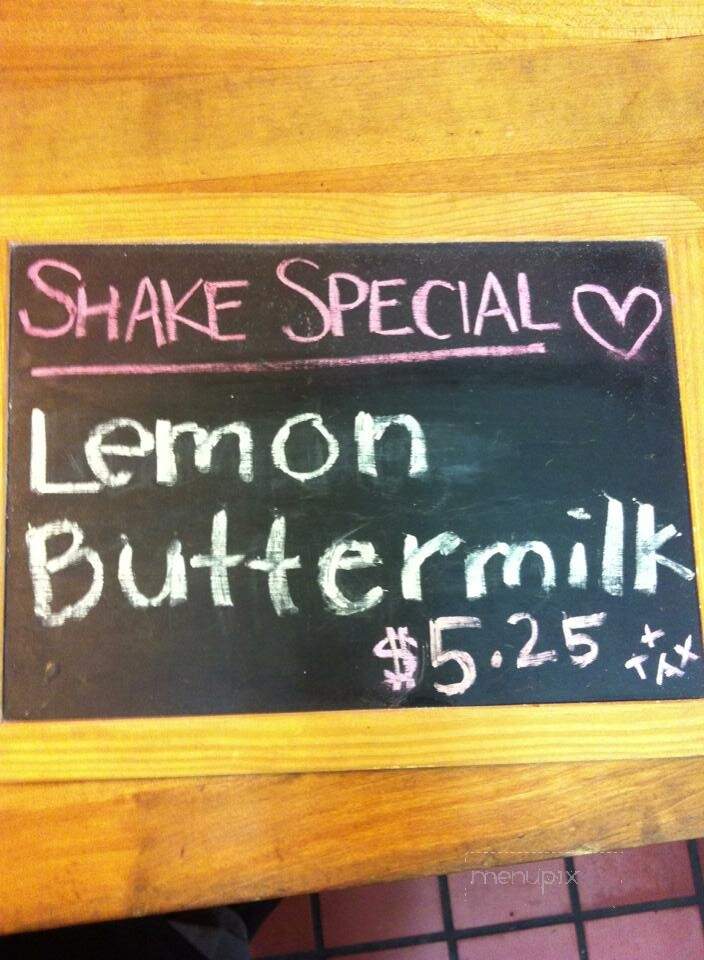 SHAKE SPECIAL
Lemon
Buttermilk
$5.25 + TAX
menupix